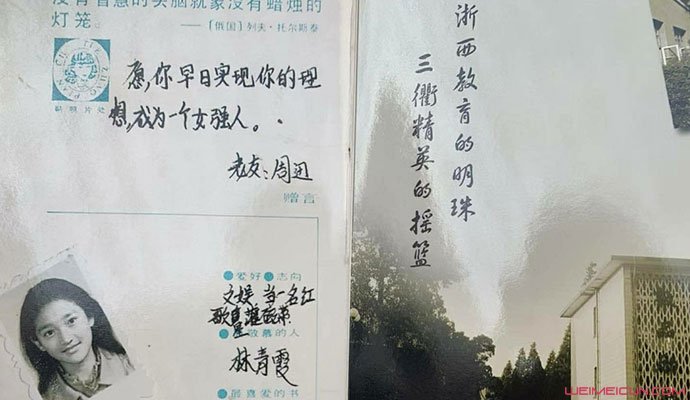 没有智慧的头脑就象没有蜡烛的
灯笼。
——〔俄国〕列夫·托尔斯泰
贴照片处
愿,你早日实现你的理
想,成为一个女强人。
老友:周迅
赠言
●爱好●志向
文娱 当一名红
歌星
●敬慕的人
林青霞
●最喜爱的书
浙西教育的明珠
三衢精英的摇篮
WEIMEICUN.COM